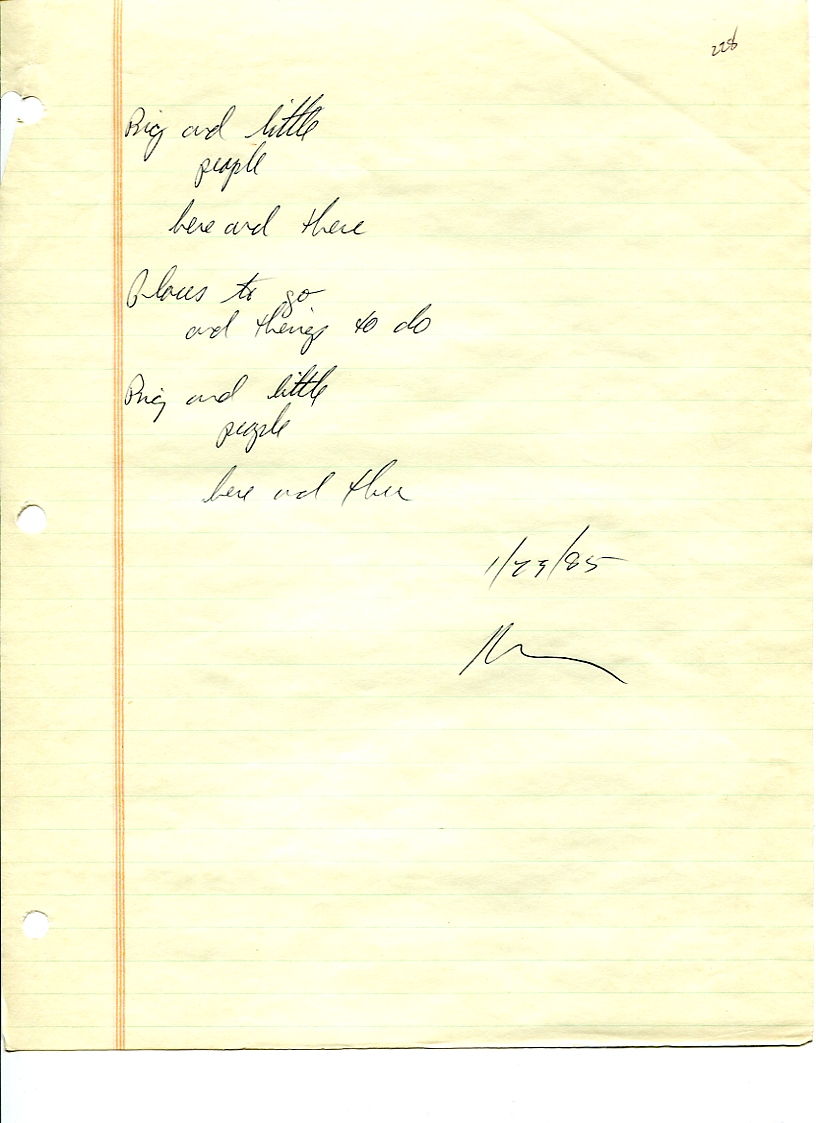 228
Big and little
people
here and there
Places to go
and things to do
Big and little
people
here and there
1/29/85